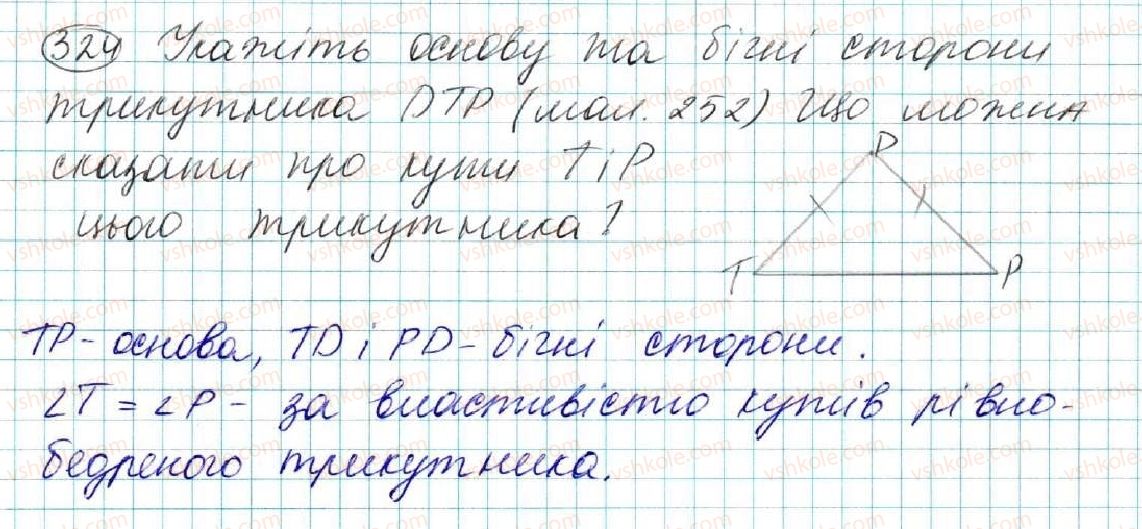 324 Укажіть основу та бічні сторони
трикутника DTP (мал. 252) Що можна
сказати про кути T і P
цього трикутника?
D
T
P
TP - основа, TD і PD - бічні сторони.
∠T = ∠P - за властивістю кутів рівно-
бедреного трикутника.